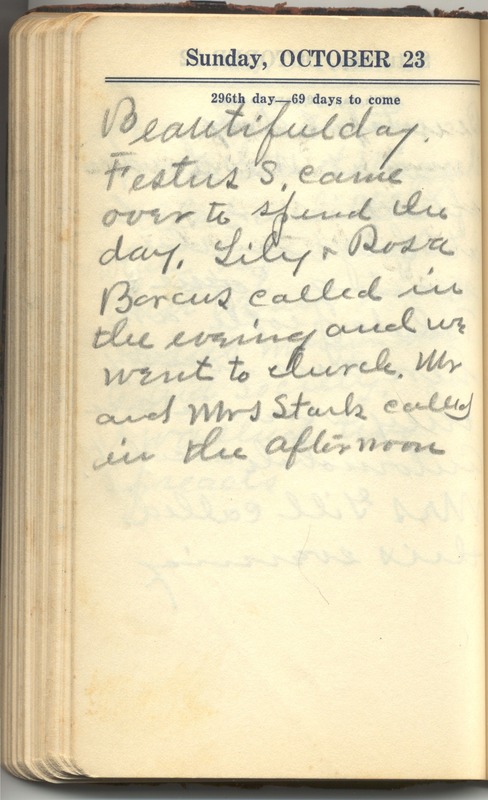 Sunday, OCTOBER 23
296th day—69 days to come
Beautiful day.
Festus S. came
over to spend the
day. Lily & Rosa
Borcus called in
the evening and we
went to church. Mr
and Mrs Stark called
in the afternoon